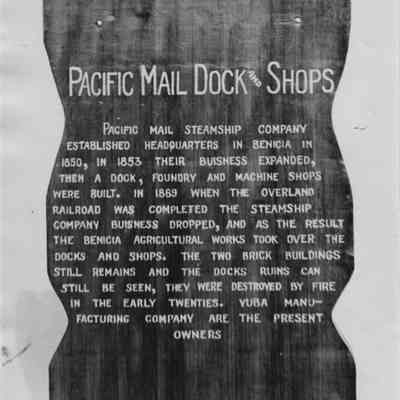 PACIFIC MAIL DOCK AND SHOPS
PACIFIC MAIL STEAMSHIP COMPANY
ESTABLISHED HEADQUARTERS IN BENICIA IN
1850, IN 1853 THEIR BUISNESS EXPANDED,
THEN A DOCK, FOUNDRY AND MACHINE SHOPS
WERE BUILT. IN 1869 WHEN THE OVERLAND
RAILROAD WAS COMPLETED THE STEAMSHIP
COMPANY BUISNESS DROPPED, AND AS THE RESULT
THE BENICIA AGRICULTURAL WORKS TOOK OVER THE
DOCKS AND SHOPS. THE TWO BRICK BUILDINGS
STILL REMAINS AND THE DOCKS RUINS CAN
STILL BE SEEN, THEY WERE DESTROYED BY FIRE
IN THE EARLY TWENTIES. YUBA MANU-
FACTURING COMPANY ARE THE PRESENT
OWNERS